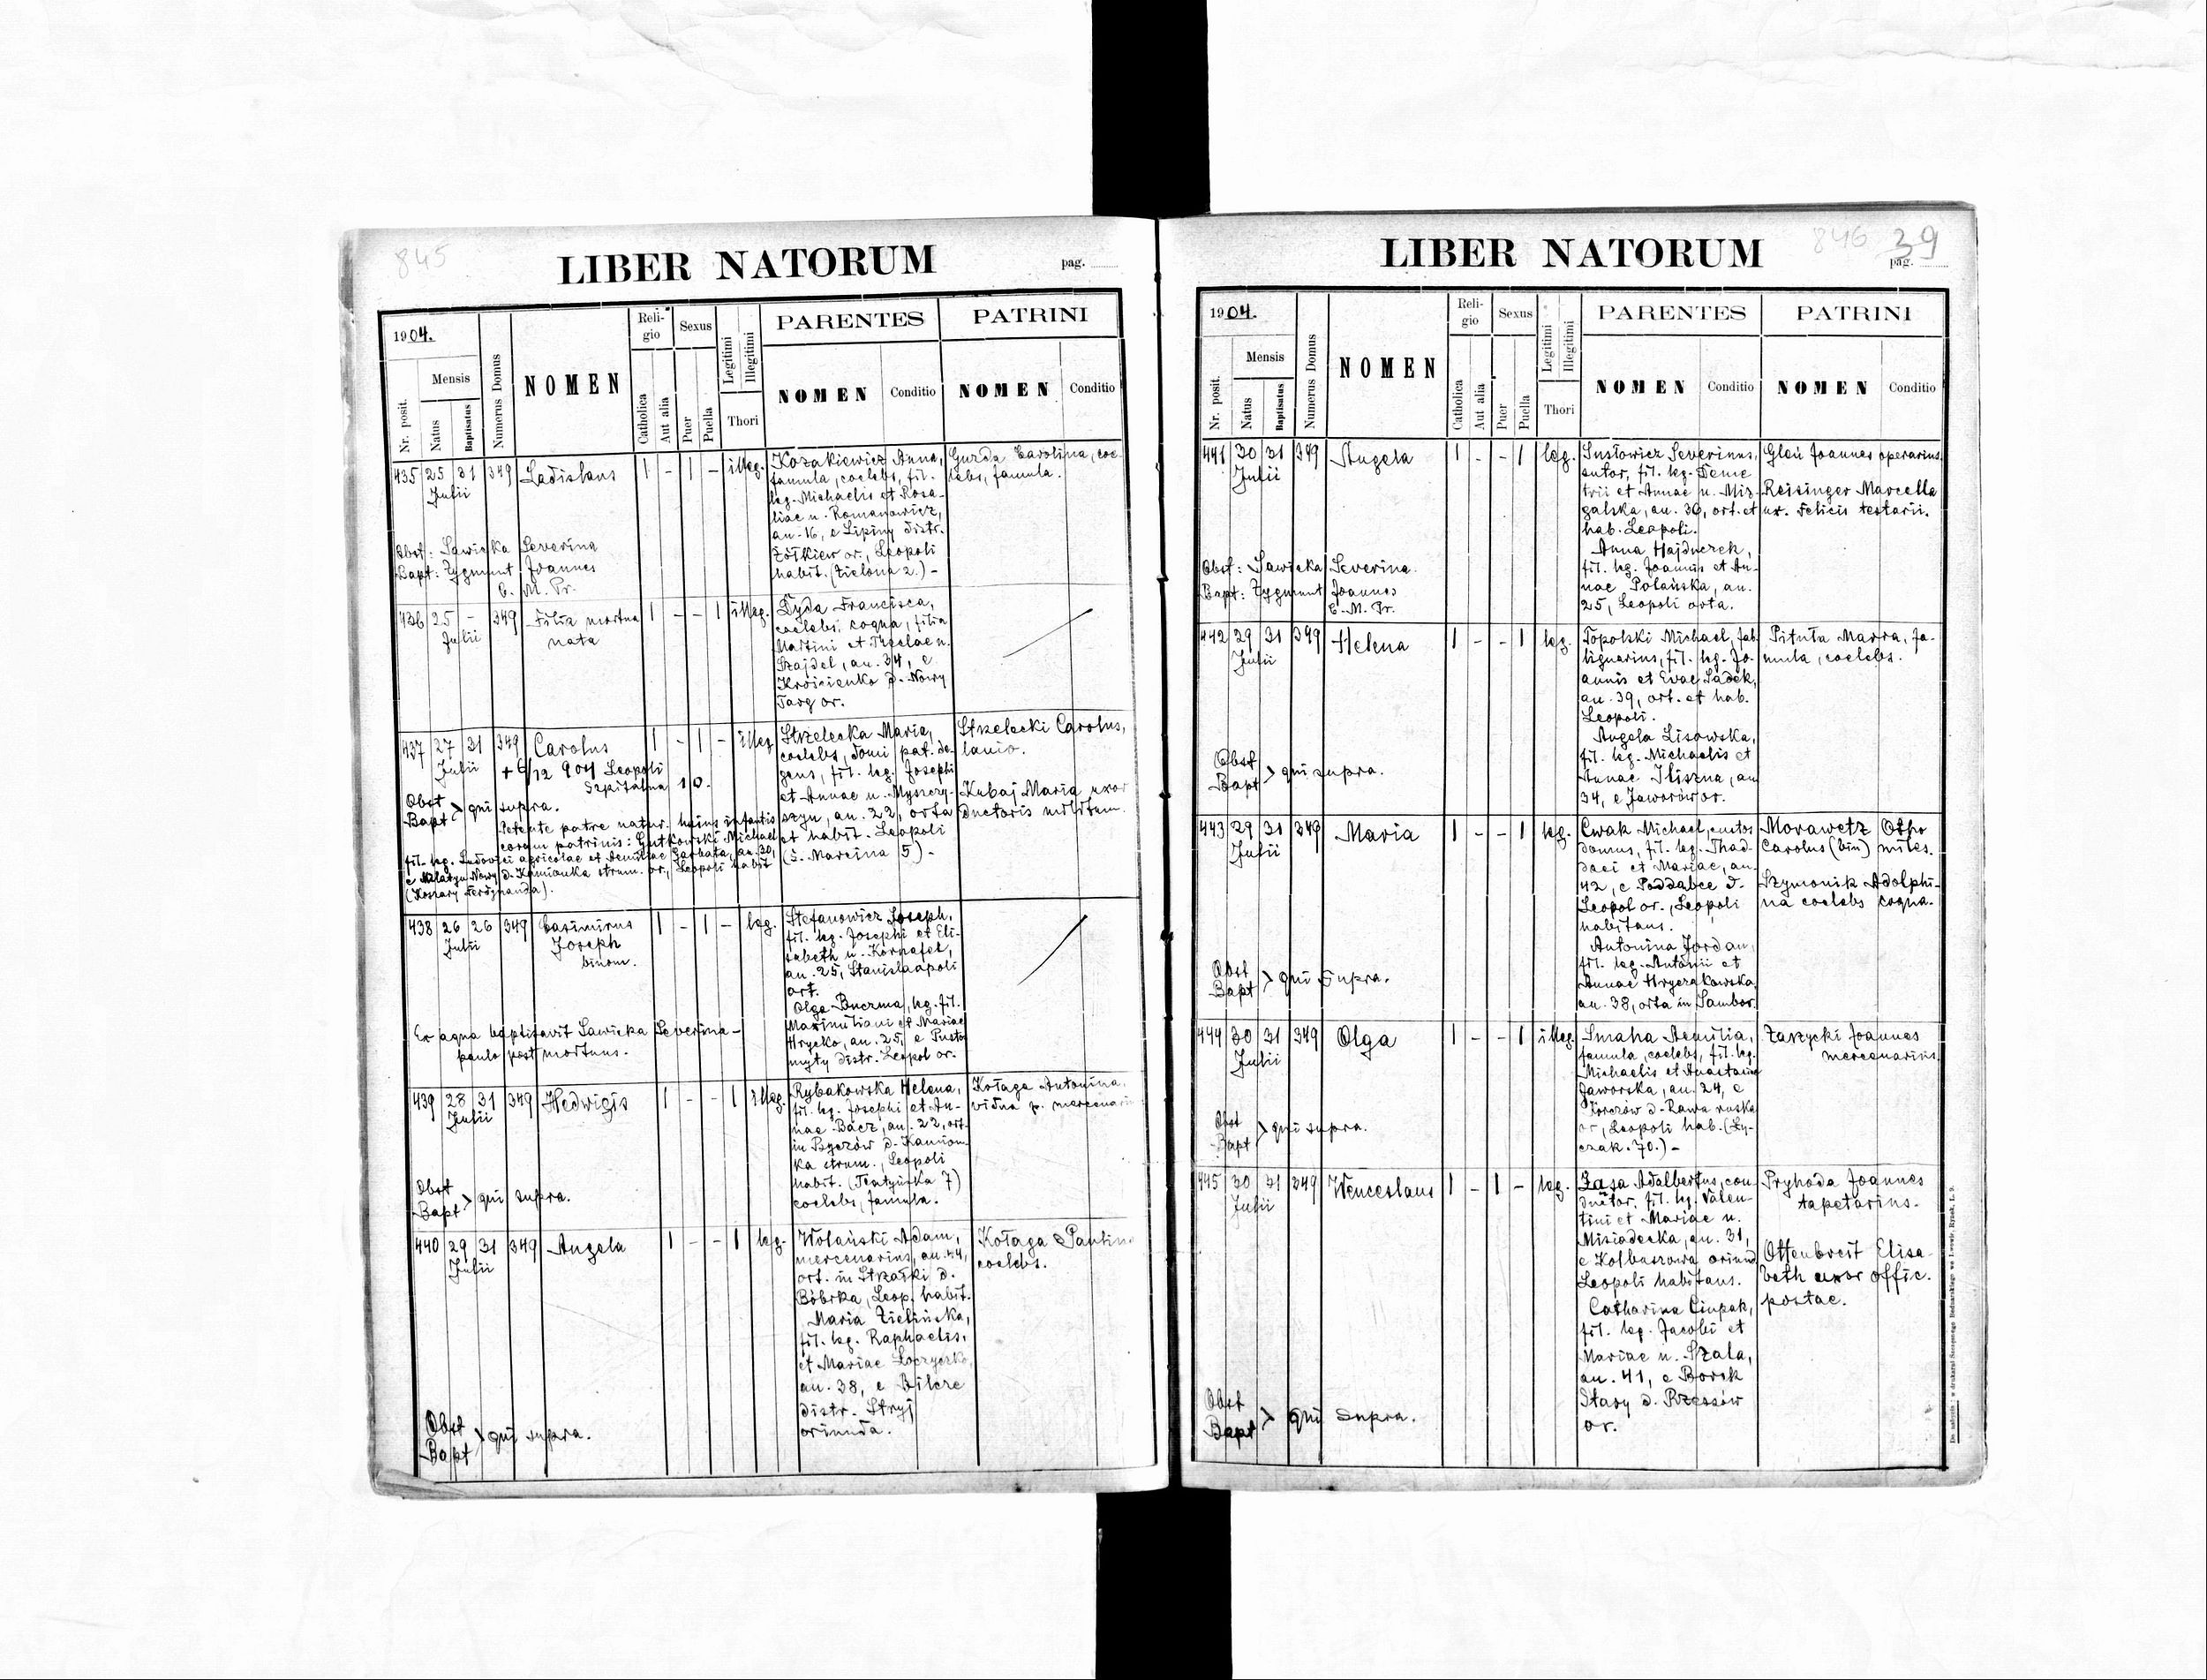 845
LIBER NATORUM
pag.
1904.
Mensis
Nr. posit.
Natus
Baptisatus
Numerus Domus
NOMEN
Religio
Catholica
Aut alia
Sexus
Puer
Puella
Legitimi
Illegitimi
Thori
PARENTES
NOMEN
Conditio
PATRINI
NOMEN
Conditio
435 25 31 349 Ladislaus 1 - 1 - illeg.
Julii
Kozakiewicz Anna,
famula, coelebs, fil.
leg. Michaelis et Rosa-
liae n. Romanowicz,
an. 16, e Lipiny distr.
Żółkiew or., Leopoli
habit. (Zielona 2.) -
Gurda Carolina, coe-
lebs, famula.
Obst: Sawicka Severina
Bapt: Zygmunt Joannes
C. M. Pr.
436 25 - 349 Filia mortua 1 - - 1 illeg.
Julii nata
Dyda Francisca,
coelebs, coqua, filia
Martini et Theclae n.
Szajdel, an. 34, e
Krościenko d. Nowy
Targ or.
437 27 31 349 Carolus 1 - 1 - illeg
Julii + 6/12 904 Leopoli
Szpitalna 10.
Strzelecka Maria,
coelebs, domi pat. de-
gens, fil. leg. Josephi
et Annae n. Myszczy-
szyn, an. 22, orta
et habit. Leopoli
(Ś. Marcina 5) -
Strzelecki Carolus,
lanio.
Kubaj Maria uxor
ductoris militum.
Obst
Bapt > qui supra.
Petente patre natur. huius infantis
coram patrinis: Gutkowski Michael
fil. leg. Ludovici agricolae et Aemiliae Garbata, an. 30,
e Milatyn Nowy d. Kamionka strum. or., Leopoli habit
(Koszary Ferdynanda).
438 26 26 349 Casimirus 1 - 1 - leg.
Julii Joseph
binom.
Stefanowicz Joseph,
fil. leg. Josephi et Eli-
sabeth n. Kornafel,
an. 25, Stanislaopoli
ort.
Olga Buczma, leg. fil.
Maximiliani et Mariae
Hrycko, an. 25, e Pusto
myty distr. Leopol or.
Ex aqua baptisavit Sawicka Severina -
paulo post mortuus.
439 28 31 349 Hedwigis 1 - - 1 illeg.
Julii
Rybakowska Helena,
fil. leg. Josephi et An-
nae Bacz, an. 22, ort.
in Byczów d. Kamion-
ka strum., Leopoli
habit. (Teatyńska 7)
coelebs, famula.
Kołaga Antonina,
vidua p. mercenario
Obst
Bapt > qui supra.
440 29 31 349 Angela 1 - - 1 leg.
Julii
Wolański Adam,
mercenarius, an. 44,
ort. in Strzałki d.
Bóbrka, Leop. habit.
Maria Zielińska,
fil. leg. Raphaelis,
et Mariae
an. 38, e Bilcze
distr. Stryj
oriunda.
Kołaga Paulina
coelebs.
Obst
Bapt > qui supra.
846 39
LIBER NATORUM
pag.
1904.
Mensis
Nr. posit.
Natus
Baptisatus
Numerus Domus
NOMEN
Religio
Catholica
Aut alia
Sexus
Puer
Puella
Legitimi
Illegitimi
Thori
PARENTES
NOMEN
Conditio
PATRINI
NOMEN
Conditio
441 30 31 349 Angela 1 - - 1 leg.
Julii
Susłowicz Severinus,
sutor, fil. leg. Deme
trii et Annae n. Miz-
galska, an. 30, ort. et
hab. Leopoli.
Anna Hajduczek,
fil. leg. Joannis et An-
nae Polańska, an.
25, Leopoli orta.
Gleń Joannes operarius.
Reisinger Marcella
ux. Felicis testarii.
Obst: Sawicka Severina.
Bapt: Zygmunt Joannes
C. M. Pr.
442 29 31 349 Helena 1 - - 1 leg.
Julii
Topolski Michael, fab.
lignarius, fil. leg. Jo-
annis et Evae Sadek,
an. 39, ort. et hab.
Leopoli.
Angela Lisowska,
fil. leg. Michaelis et
Annae Iliszna, an
34, e Jaworów or.
Pituła Maria, fa-
mula, coelebs.
Obst
Bapt > qui supra.
443 29 31 349 Maria 1 - - 1 leg.
Julii
Cwak Michael, custos
domus, fil. leg. Thad-
daei et Mariae, an.
42, e Poddabce d.
Leopol or., Leopoli
habitans.
Antonina Jordan,
fil. leg. Antonii et
Annae Hryczakowska
an. 38, orta in Sambor.
Morawetz Otho
Carolus (bin) miles.
Szymonik Adolphi-
na coelebs coqua.
Obst
Bapt > qui supra.
444 30 31 349 Olga 1 - - 1 illeg.
Julii
Smaha Aemilia,
famula, coelebs, fil. leg.
Michaelis et Anastasiae
Jaworska, an. 24, e
Korczów d. Rawa ruska
or, Leopoli hab. (Ły-
czak. 70.) -
Zarzycki Joannes
mercenarius.
Obst
Bapt > qui supra.
445 30 31 349 Wenceslaus 1 - 1 - leg.
Julii
Zasa Adalbertus, con-
ductor, fil. leg. Valen-
tini et Mariae n.
Misiadecka, an. 31,
e Kolbuszowa oriund
Leopoli habitans.
Catharina Ciupak,
fil. leg. Jacobi et
Mariae n. Szala,
an. 41, e Borek
Stary d. Rzeszów
or.
Pryhoda Joannes
tapetarius.
Offenbreit Elisa-
beth uxor offic.
postae.
Obst
Bapt > qui supra.